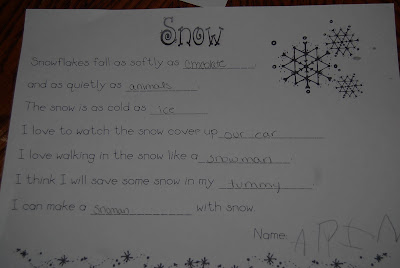 Snow
Snowflakes fall as softly as chocolate,
and as quietly as animals.
The snow is as cold as ice.
I love to watch the snow cover up our car.
I love walking in the snow like a snowman.
I think I will save some snow in my tummy.
I can make a snoman with snow.
Name